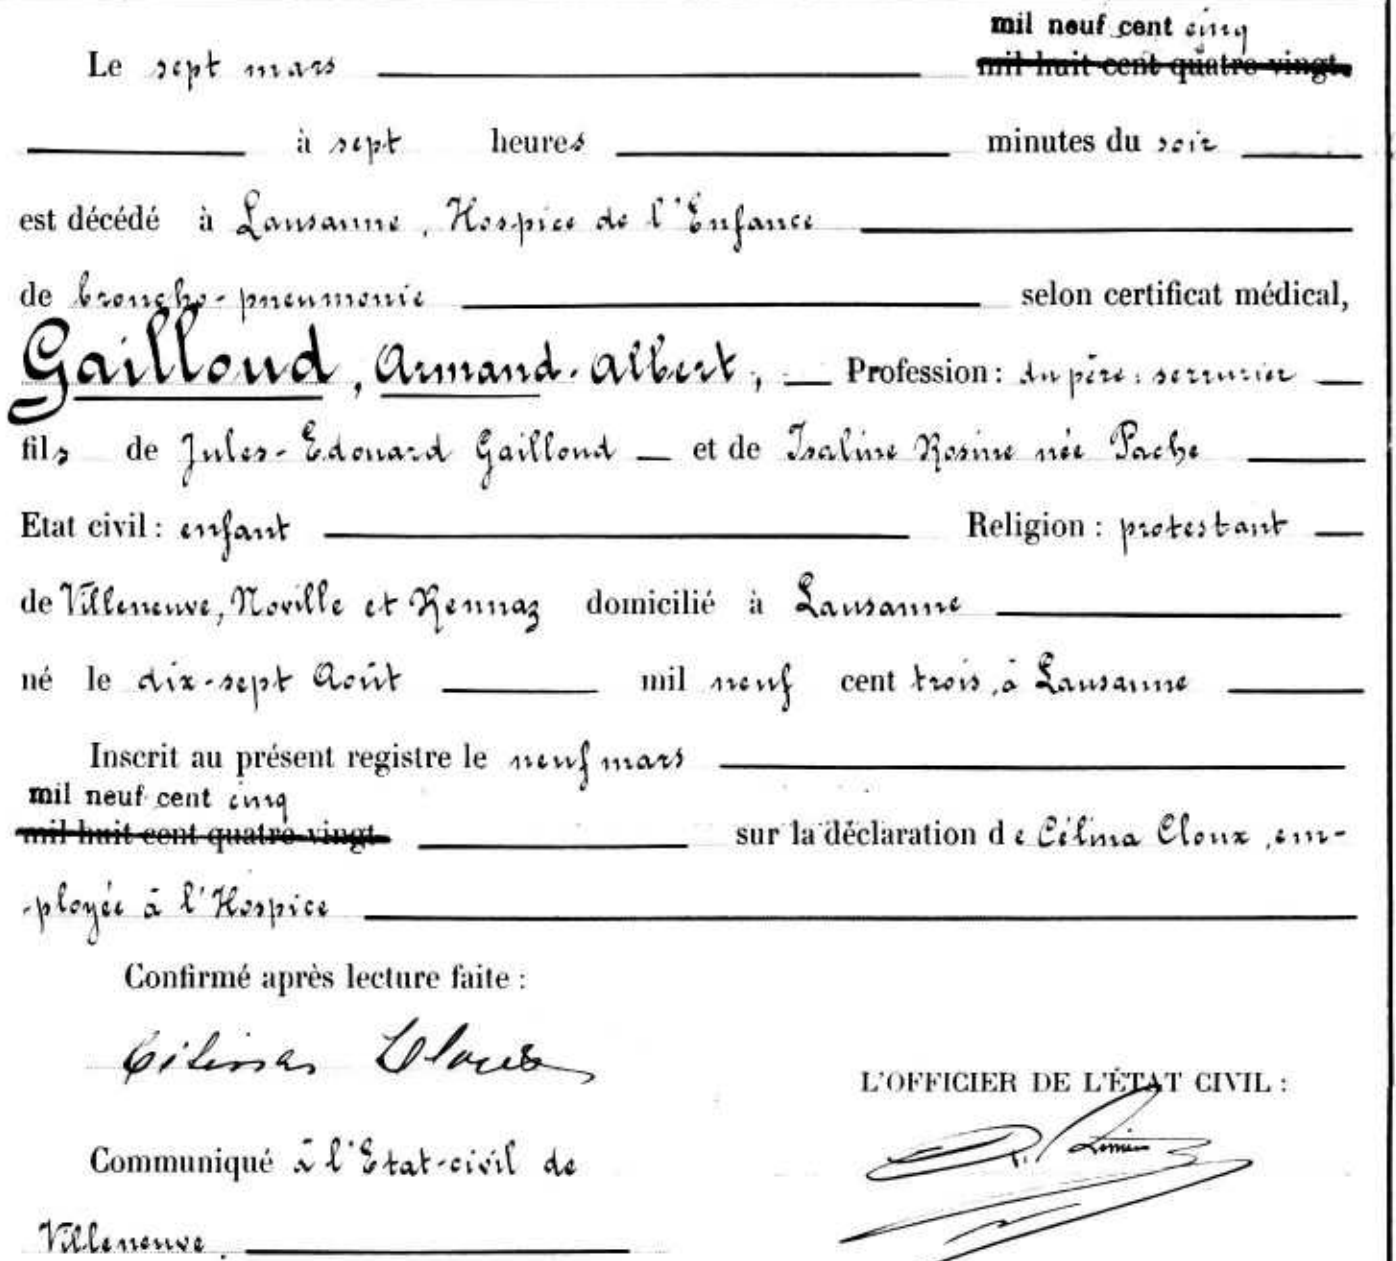 mil neuf cent cinq
Le sept mars mil huit cent quatre-vingt
à sept heures minutes du soir
est décédé à Lausanne, Hospice de l'Enfance
de broncho-pneumonie selon certificat médical,
Gailloud, Armand-Albert, Profession: du père: serrurier
fils de Jules-Edouard Gailloud et de Isaline Rosine née Pache
Etat civil: enfant Religion: protestant
de Villeneuve, Noville et Rennaz domicilié à Lausanne
né le dix-sept Août mil neuf cent trois, à Lausanne
Inscrit au présent registre le neuf mars
mil neuf cent cinq
mil huit cent quatre-vingt sur la déclaration de Célina Cloux, em-
-ployée à l'Hospice
Confirmé après lecture faite:
Célina Cloux
L'OFFICIER DE L'ÉTAT CIVIL:
Communiqué à l'Etat-civil de
Villeneuve.